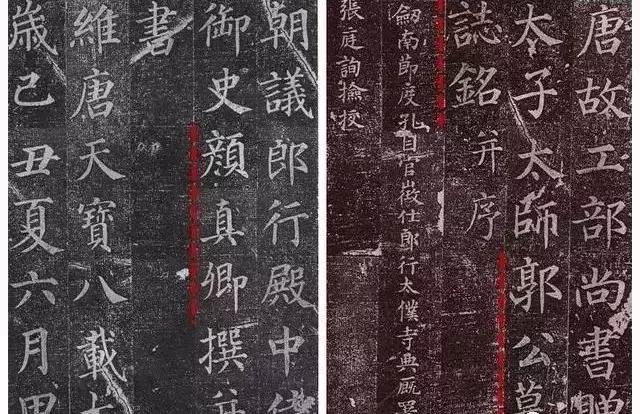 朝議郎行殿中侍
御史顏真卿撰并
書
維唐天寶八載
歲己丑夏六月甲
唐故工部尚書贈
太子太師郭公墓
誌銘并序
劔南節度孔目官徵仕郎行太僕寺典廐署
張庭詢撿挍